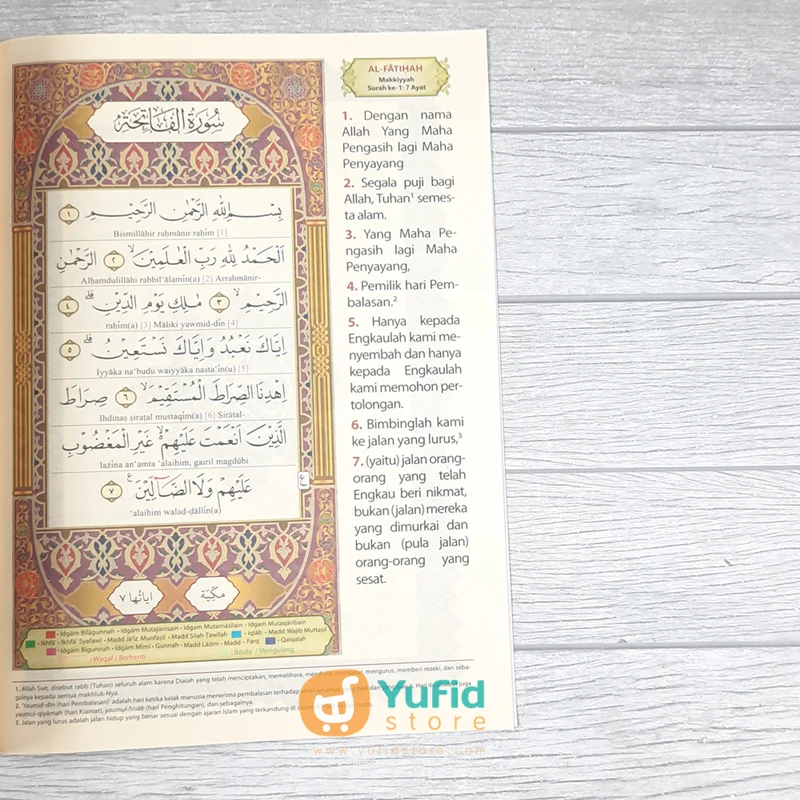 سُورَةُ الفَاتِحَةِ
بِسْمِ اللهِ الرَّحْمٰنِ الرَّحِيْمِ ١
Bismillāhir raḥmānir raḥīm [1]
اَلْحَمْدُ لِلهِ رَبِّ الْعٰلَمِيْنَۙ ٢ الرَّحْمٰنِ
Alḥamdulillāhi rabbil‘ālamīn(a) [2] Arraḥmānir-
الرَّحِيْمِۙ ٣ مٰلِكِ يَوْمِ الدِّيْنِۗ ٤
raḥīm(a) [3] Māliki yawmid-dīn [4]
اِيَّاكَ نَعْبُدُ وَاِيَّاكَ نَسْتَعِيْنُۗ ٥
Iyyāka na‘budu waiyyāka nasta‘īn(u) [5]
اِهْدِنَا الصِّرَاطَ الْمُسْتَقِيْمَۙ ٦ صِرَاطَ
Ihdinaṣ ṣirāṭal mustaqīm(a) [6] Ṣirāṭal-
الَّذِيْنَ اَنْعَمْتَ عَلَيْهِمْ ەۙ غَيْرِ الْمَغْضُوْبِ
lażīna an‘amta ‘alaihim, gairil magḍūbi
عَلَيْهِمْ وَلَا الضَّاۤلِّيْنَ ࣖ ٧
ع
‘alaihim walaḍ-ḍāllīn(a)
مكيّة
اياتها ٧
Idgām Bilāgunnah • Idgam Mutajānisain • Idgam Mutamāṡilain • Idgam Mutaqāribain
Ikhfā’ • Ikhfā’ Syafawī • Madd Jā’iz Munfaṣil • Madd Silah Tawīlah Iqlāb • Madd Wajib Muttaṣil
Idgām Bigunnah • Idgām Mīmī • Gunnah • Madd Lāzim • Madd • Farq Qalqalah
:Waqaf / Berhenti :Ibtida' / Mengulang
AL-FĀTIḤAH
Makkiyyah
Surah ke-1: 7 Ayat
1. Dengan nama
Allah Yang Maha
Pengasih lagi Maha
Penyayang
2. Segala puji bagi
Allah, Tuhan¹ semes-
ta alam.
3. Yang Maha Pe-
ngasih lagi Maha
Penyayang,
4. Pemilik hari Pem-
balasan.²
5. Hanya kepada
Engkaulah kami me-
nyembah dan hanya
kepada Engkaulah
kami memohon per-
tolongan.
6. Bimbinglah kami
ke jalan yang lurus,³
7. (yaitu) jalan orang-
orang yang telah
Engkau beri nikmat,
bukan (jalan) mereka
yang dimurkai dan
bukan (pula jalan)
orang-orang yang
sesat.
1. Allah Swt. disebut rabb (Tuhan) seluruh alam karena Dialah yang telah menciptakan, memelihara, mengurus, memberi rezeki, dan seba-
gainya kepada semua makhluk-Nya.
2. 'Yaumid-dīn (hari Pembalasan)' adalah hari ketika kelak manusia menerima pembalasan terhadap juga
yaumul-qiyāmah (hari Kiamat), yaumul-ḥisāb (hari Penghitungan), dan sebagainya.
3. Jalan yang lurus adalah jalan hidup yang benar sesuai dengan ajaran Islam yang terkandung di
Yufid
store
www.yufidstore.com